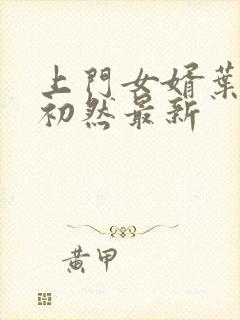 上門女婿葉
初然最新
黃甲